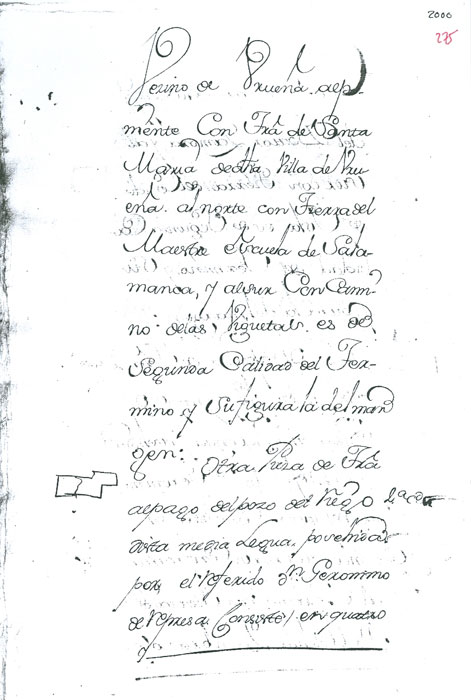 2000
275
Vezino de Vrueña. alp-
mente Con Trã de Santa
Maria de dha Villa de Vru
eña. al norte con Tierra del
Maestre escuela de Sala-
manca, y al sur Con Cami-
no de las Viguetas. es de
Segunda Calidad del Ter-
mino y su figura la del mar
gen: Otra Pieza de Trã
al pago del pozo del Nego
dista media Legua. posehida
por, el referido Dn. Geronimo
de represa Consiste en quatro